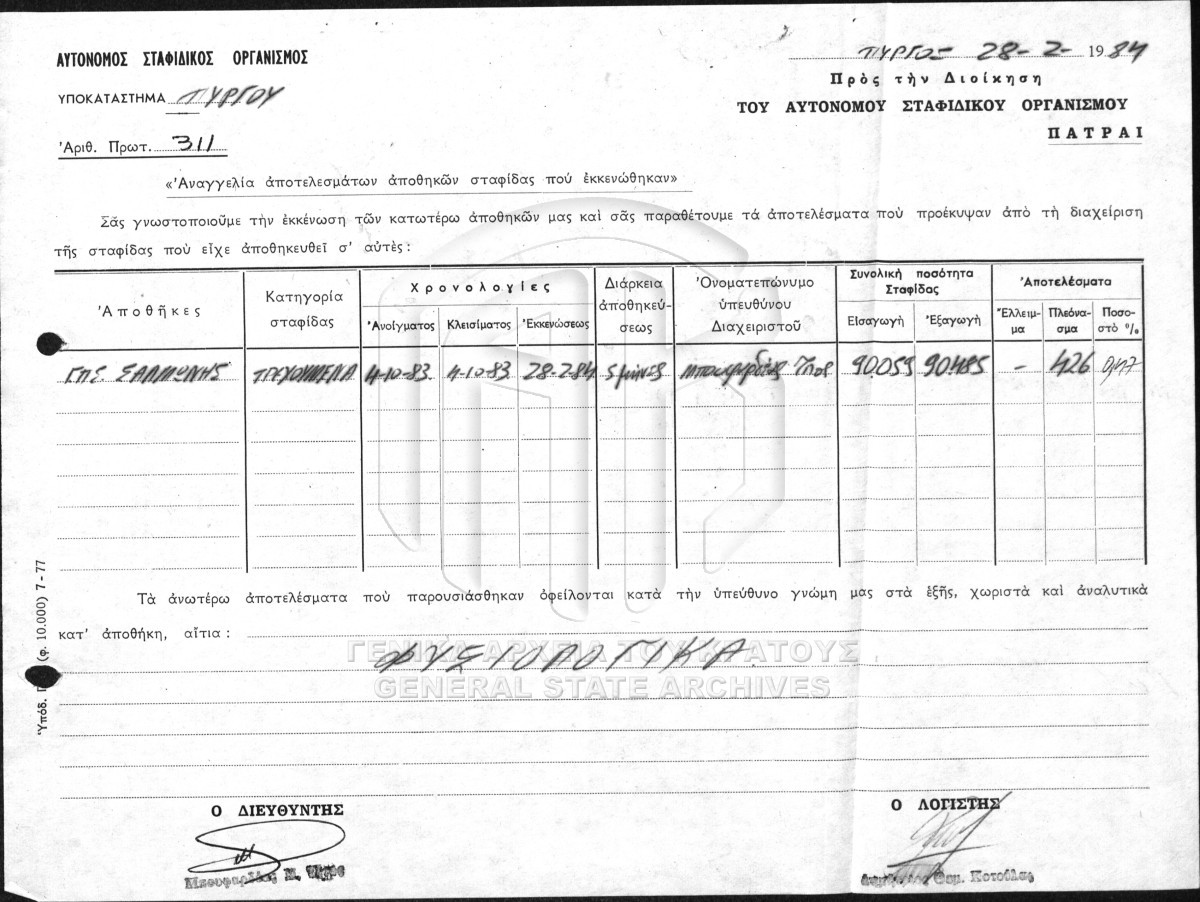 ΑΥΤΟΝΟΜΟΣ ΣΤΑΦΙΔΙΚΟΣ ΟΡΓΑΝΙΣΜΟΣ
ΥΠΟΚΑΤΑΣΤΗΜΑ ΠΥΡΓΟΥ
Ἀριθ. Πρωτ. 311
ΠΥΡΓΟΣ 28-2- 1984
Πρὸς τὴν Διοίκηση
ΤΟΥ ΑΥΤΟΝΟΜΟΥ ΣΤΑΦΙΔΙΚΟΥ ΟΡΓΑΝΙΣΜΟΥ
ΠΑΤΡΑΙ
«Ἀναγγελία ἀποτελεσμάτων ἀποθηκῶν σταφίδας πού ἐκκενώθηκαν»
Σᾶς γνωστοποιοῦμε τὴν ἐκκένωση τῶν κατωτέρω ἀποθηκῶν μας καὶ σᾶς παραθέτουμε τά ἀποτελέσματα ποὺ προέκυψαν ἀπὸ τὴ διαχείριση
τῆς σταφίδας ποὺ εἶχε ἀποθηκευθεῖ σ' αὐτές :
Ἀποθῆκες
Κατηγορία σταφίδας
Χρονολογίες
Ἀνοίγματος Κλεισίματος Ἐκκενώσεως
Διάρκεια ἀποθηκεύ- σεως
Ὀνοματεπώνυμο ὑπευθύνου Διαχειριστοῦ
Συνολικὴ ποσότητα Σταφίδας
Εἰσαγωγὴ Ἐξαγωγὴ
Ἀποτελέσματα
Ἔλλειμ- μα Πλεόνα- σμα Ποσο- στὸ %
ΓΠΣ. ΣΑΛΜΩΝΗΣ ΤΡΕΧΟΥΜΕΝΑ 4-10-83 4-10-83 28-2-84 5 μῆνες 90.059 90.485 - 426 0,47
Τὰ ἀνωτέρω ἀποτελέσματα ποὺ παρουσιάσθηκαν ὀφείλονται κατὰ τὴν ὑπεύθυνο γνώμη μας στὰ ἑξῆς, χωριστὰ καὶ ἀναλυτικὰ
κατ' ἀποθήκη, αἴτια :
ΦΥΣΙΟΛΟΓΙΚΑ
ΓΕΝΙΚΑ ΑΡΧΕΙΑ ΤΟΥ ΚΡΑΤΟΥΣ
GENERAL STATE ARCHIVES
Ὑπόδ. (φ. 10.000) 7-77
Ο ΔΙΕΥΘΥΝΤΗΣ
Ο ΛΟΓΙΣΤΗΣ
Θεμ. Κοτούλας